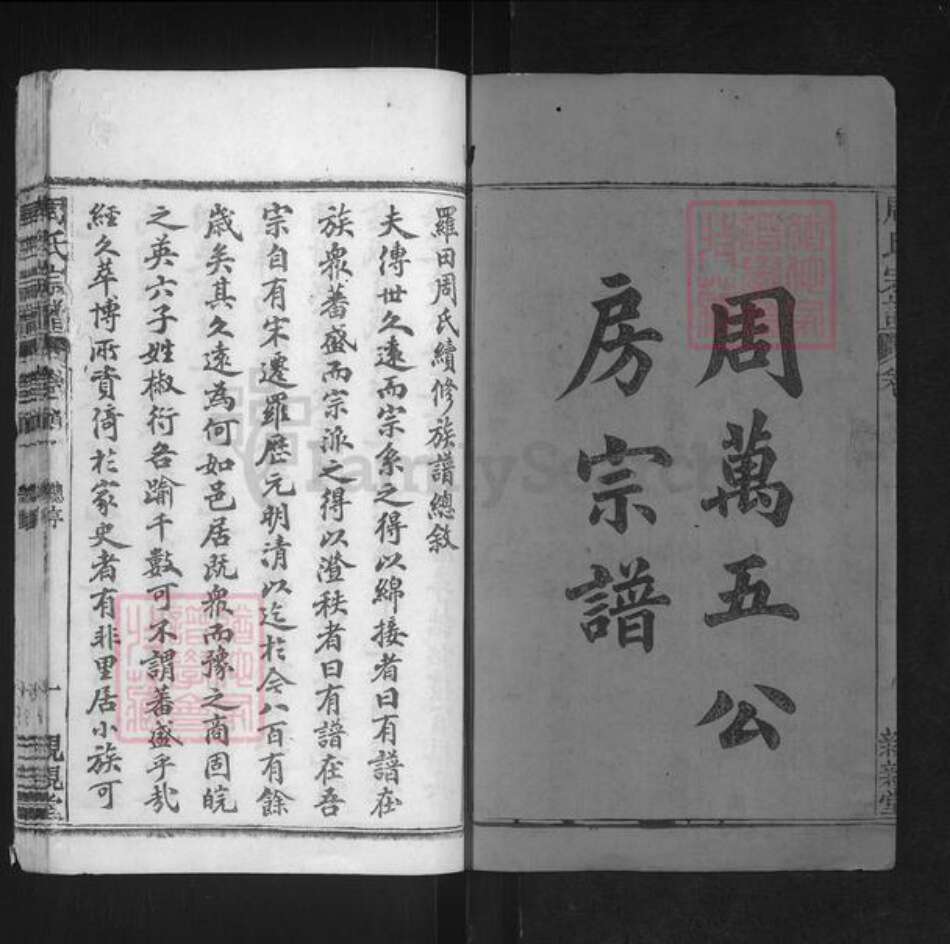 周萬五公
房宗譜
羅田周氏續修族譜總敘
夫傳世久遠而宗系之得以綿接者曰有譜在
族眾蕃盛而宗派之得以澄秩者曰有譜在吾
宗自有宋遷羅歷元明清以迄於今八百有餘
歲矣其久遠為何如邑居既眾而豫之商固皖
之英六子姓椒衍各踰千數可不謂蕃盛乎哉
經久萃博所賁倚於家史者有非里居小族可
周氏宗譜
總序
一
親親堂
FamilySearch